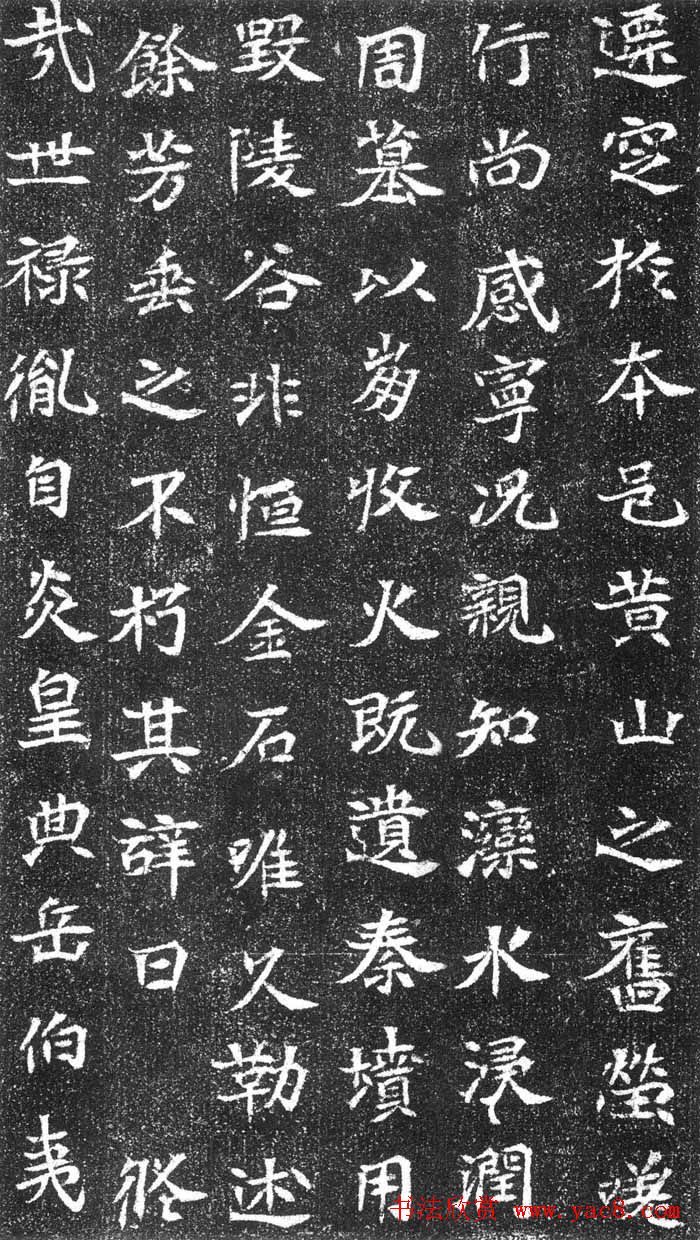 遷窆於本邑黄山之舊塋嘆
行尚感寧況親知灤水浸潤
周墓以芻收火既遺秦墳用
毀陵谷非恒金石唯久勒述
餘芳垂之不朽其辞曰 修
哉世禄胤自炎皇典岳伯夷
书法欣赏 www.yac8.com